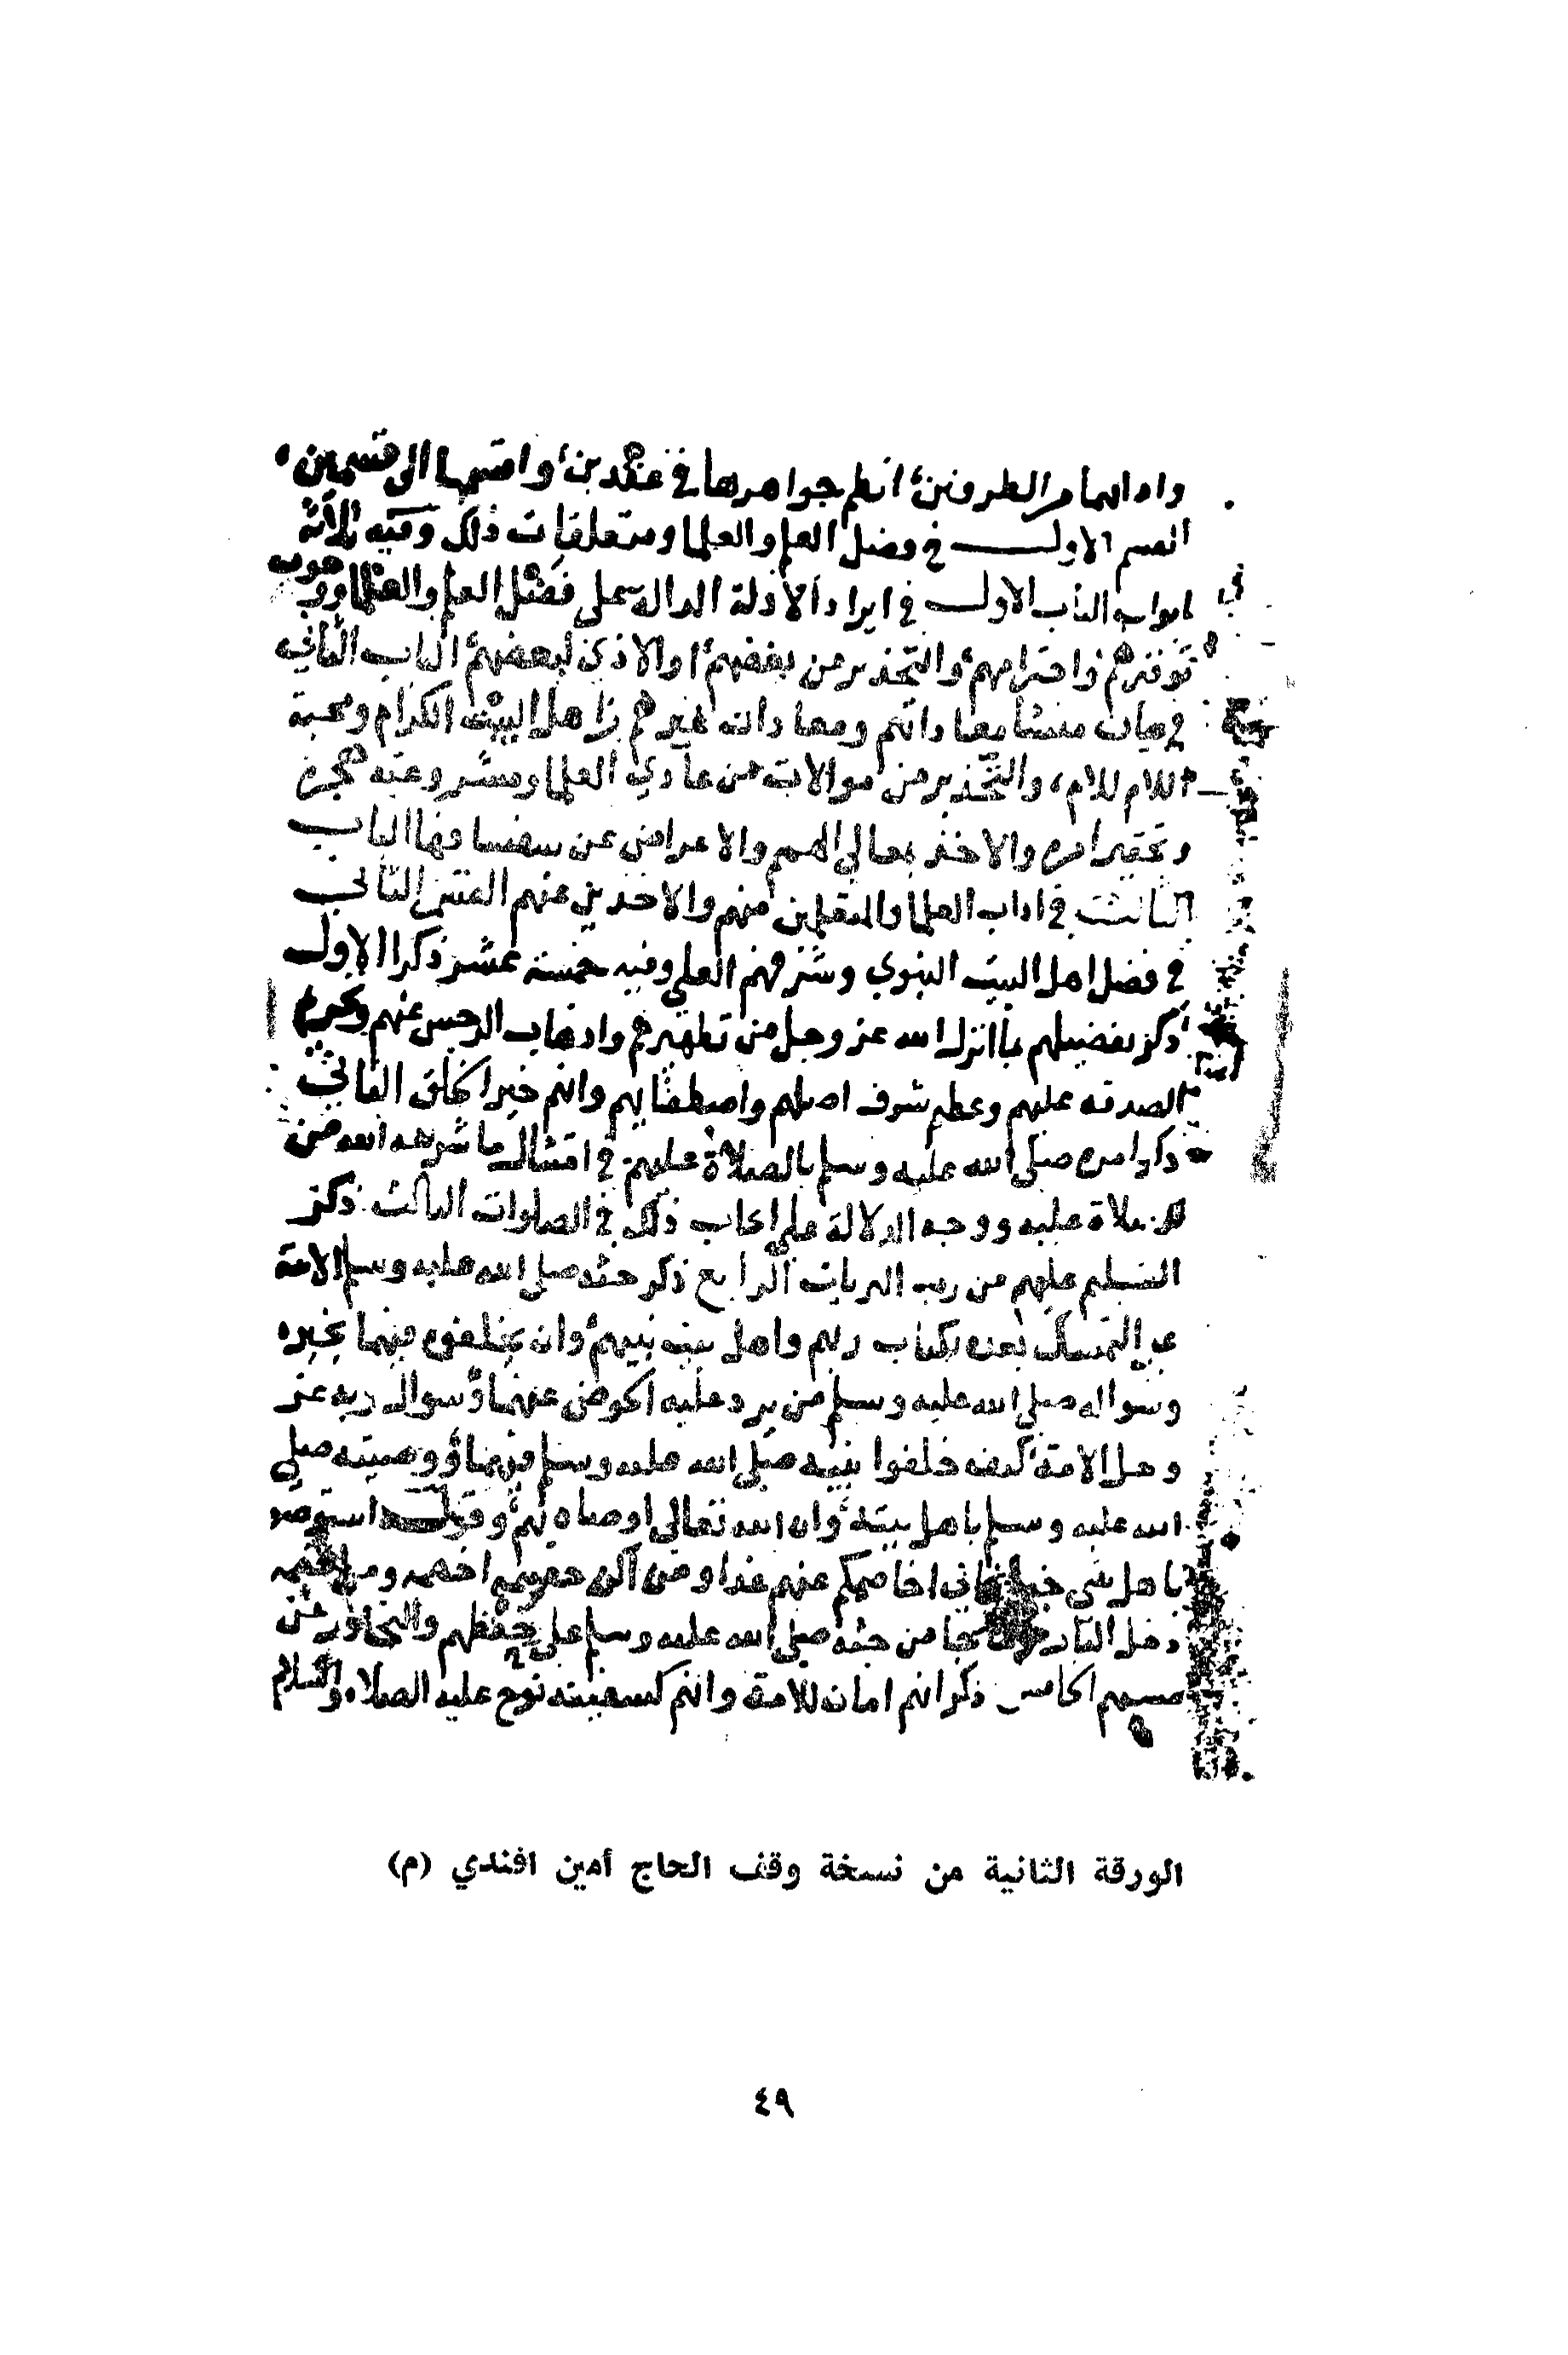 انظم جواهرها في عقدين، واقسمها الى قسمين،
القسم الاول في فضل العلم والعلما ومتعلقات ذلك وفيه ثلاثة
ابواب الباب الاول في ايراد الادلة الدالة على فضل العلم والعلما ووجوب
توقيرهم واحترامهم والتحذير من بغضهم او الاذى لبعضهم الباب الثاني
في بيان منشا معاداتهم ومعاداة غيرهم من اهل البيت الكرام ومحبة
اللام للام، والتحذير من موالات من عادي العلما ومشروعية هجره
وتحقير امره والاخذ بمعالي الهمم والاعراض عن سفسافها الباب
الثالث في اداب العلما والمتعلمين منهم والاخذين عنهم القسم الثاني
في فضل اهل البيت النبوي وشرفهم العلي وفيه خمسة عشر ذكرا الاول
ذكر تفضيلهم بما انزل الله عز وجل من تطهيرهم واذهاب الرجس عنهم وتحريم
الصدقة عليهم وعظم شرف اصلهم واصطفايهم وانهم خير الخلق الثاني
ذكر امره صلى الله عليه وسلم بالصلاة عليهم في امتثال ما شرعه الله من
الصلاة عليه ووجه الدلالة على ايجاب ذلك في الصلوات الثالث ذكر
التسليم عليهم من رب البريات الرابع ذكر حثه صلى الله عليه وسلم الامة
على التمسك بعده بكتاب ربهم واهل بيت نبيهم وان يخلفوه فيهما بخير
وسواله صلى الله عليه وسلم من يرد عليه الحوض عنهما وسوال ربه عز
وجل الامة كيف خلفوا نبيه صلى الله عليه وسلم فيهما ووصيته صلى
الله عليه وسلم باهل بيته وان الله تعالى اوصاه بهم وقوله استوصوا
باهل بيتي خيرا فاني اخاصمكم عنهم غدا ومن اكن خصمه اخصمه ومن اخصمه
دخل النار وما جا من حثه صلى الله عليه وسلم على حفظهم والتجاوز عن
مسيهم الخامس ذكر انهم امان للامة وانهم كسفينة نوح عليه الصلاة والسلام
الورقة الثانية من نسخة وقف الحاج أمين افندي (م)
٤٩